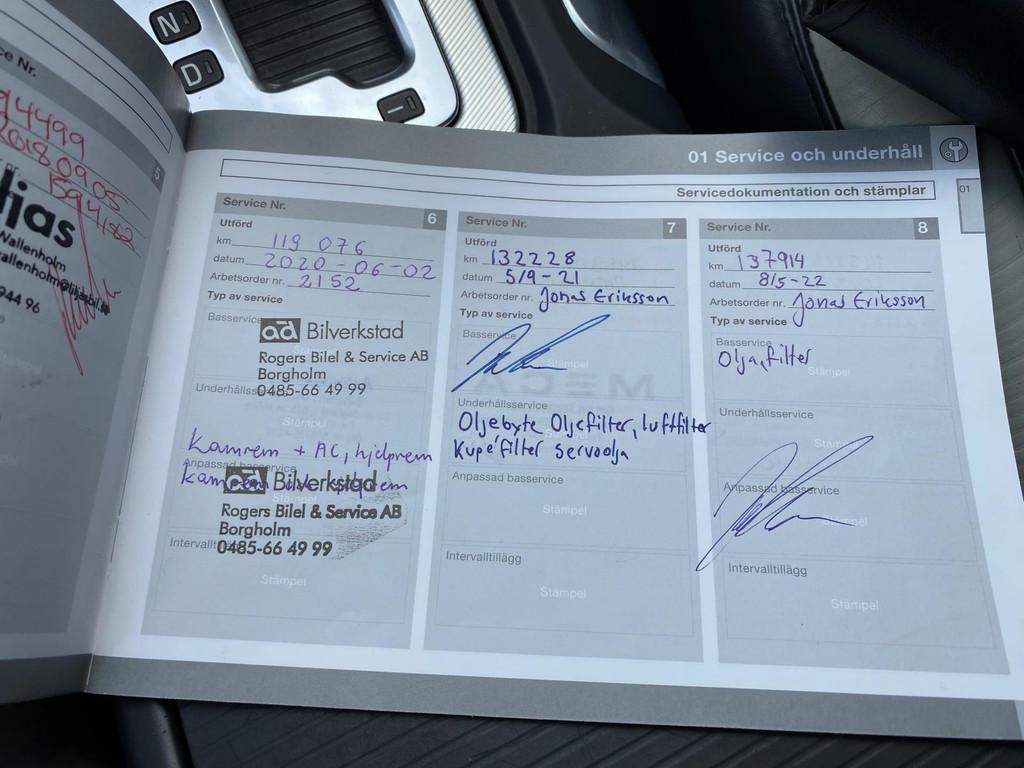 N
D
ce Nr.
5
94499
20180905
1594182
ijas
Wallenholm
allenholm@lijasbil.se
944 96
01 Service och underhåll
Servicedokumentation och stämplar
01
Service Nr. 6
Utförd
km 119 076
datum 2020-06-02
Arbetsorder nr. 2152
Typ av service
Basservice
ad Bilverkstad
Rogers Bilel & Service AB
Borgholm
0485-66 49 99
Underhållsservice
Stämpel
Kamrem + AC, hjälprem
Anpassad basservice
ad Bilverkstad
Stämpel
Rogers Bilel & Service AB
Borgholm
Intervalltillägg
0485-66 49 99
Stämpel
Service Nr. 7
Utförd
km 132228
datum 5/9-21
Arbetsorder nr. Jonas Eriksson
Typ av service
Basservice
Stämpel
Underhållsservice
Oljebyte Oljefilter, luftfilter
Kupé filter servoolja
Anpassad basservice
Stämpel
Intervalltillägg
Stämpel
Service Nr. 8
Utförd
km 137914
datum 8/5-22
Arbetsorder nr. Jonas Eriksson
Typ av service
Basservice
Olja, filter
Stämpel
Underhållsservice
Stämpel
Anpassad basservice
Stämpel
Intervalltillägg
Stämpel